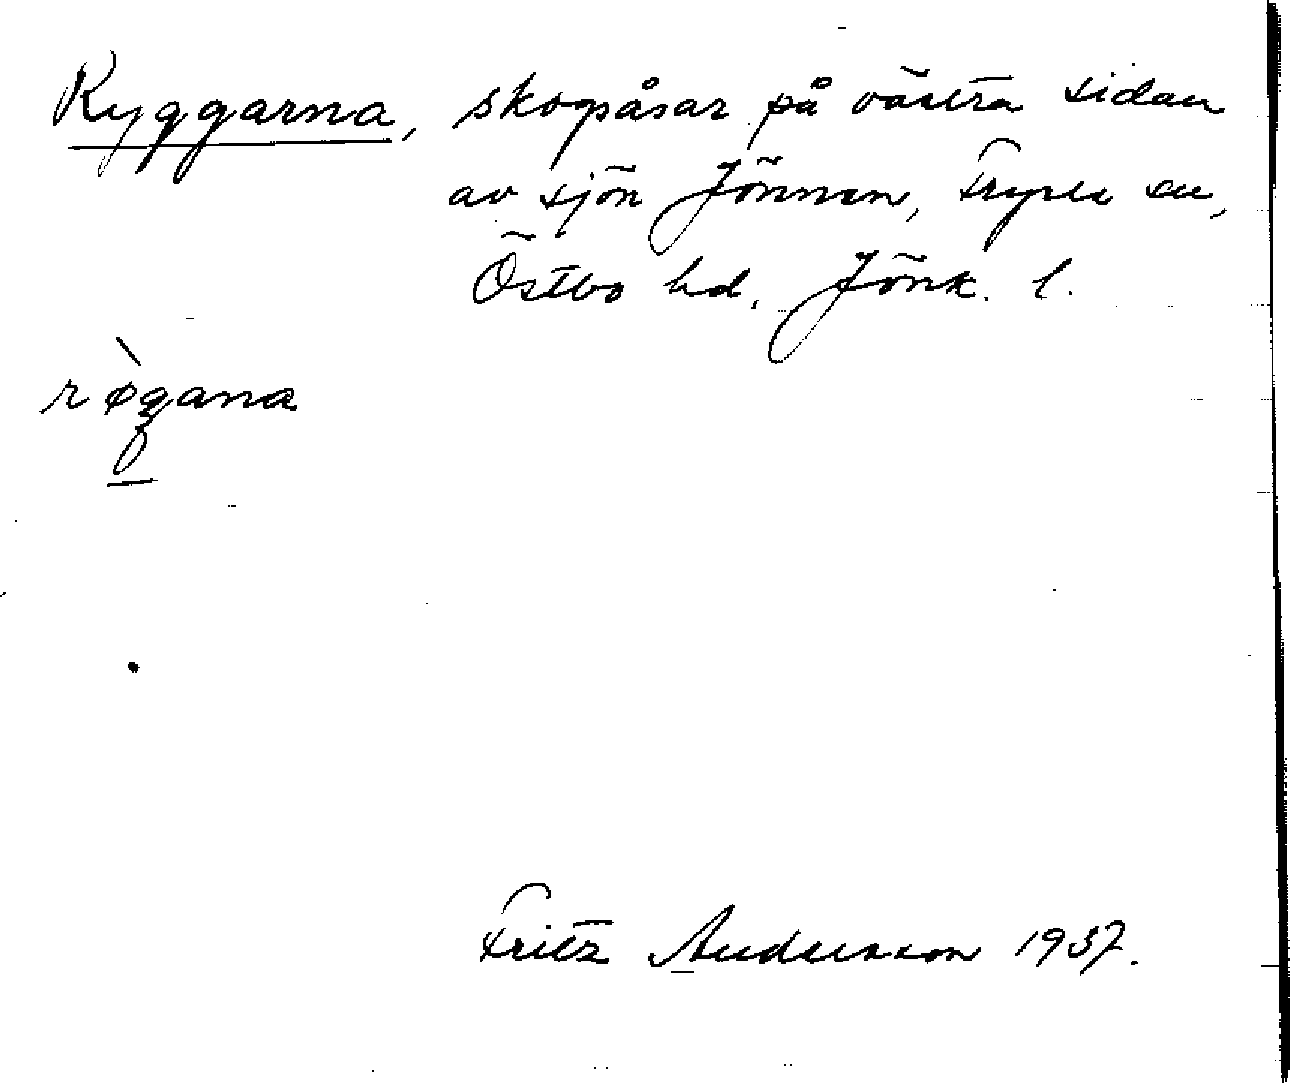 Ryggarna, skogsåsar på västra sidan
av sjön Jönnen, Fryele sn,
Östbo hd, Jönk. l.
røgana
Fritz Andersson 1937.